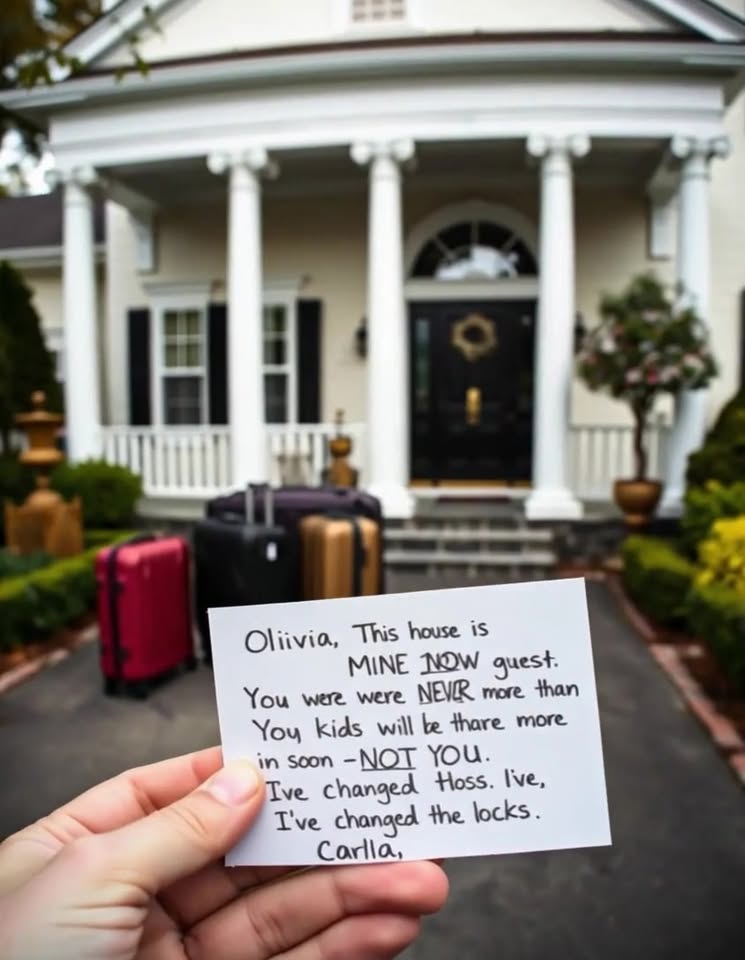 Oliivia, This house is
MINE NOW guest.
You were were NEVER more than
You, kids will be thare more
in soon – NOT YOU.
Ive changed Hoss. live,
I've changed the locks.
Carlla,